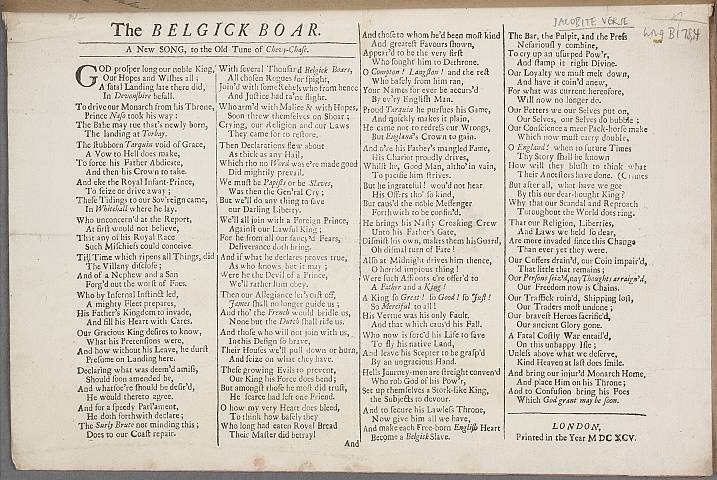 JACOBITE VERSE
The BELGICK BOAR.
A New SONG, to the Old Tune of Chevy-Chase.
GOD prosper long our noble King,
Our Hopes and Wishes all;
A fatal Landing late there did,
In Devonshire befall.
To drive our Monarch from his Throne,
Prince Naso took his way:
The Babe may rue that's newly born,
The landing at Torbay.
The stubborn Tarquin void of Grace,
A Vow to Hell does make,
To force his Father Abdicate,
And then his Crown to take.
And eke the Royal Infant-Prince,
To seize or drive away;
These Tidings to our Sov'reign came,
In Whitehall where he lay.
Who unconcern'd at the Report,
At first would not believe,
That any of his Royal Race
Such Mischiefs could conceive.
Till Time which ripens all Things, did
The Villany disclose;
And of a Nephew and a Son
Forg'd out the worst of Foes.
Who by Infernal Instinct led,
A mighty Fleet prepares,
His Father's Kingdom to invade,
And fill his Heart with Cares.
Our Gracious King desires to know,
What his Pretensions were,
And how without his Leave, he durst
Presume on Landing here.
Declaring what was deem'd amiss,
Should soon amended be,
And whatsoe're should be desir'd,
He would thereto agree.
And for a speedy Parl'ament,
He doth forthwith declare;
The Surly Brute not minding this;
Does to our Coast repair.
With several Thousand Belgick Boars,
All chosen Rogues for spight,
Join'd with some Rebels who from hence
And Justice had ta'ne flight.
Who arm'd with Malice & with Hopes,
Soon threw themselves on Shoar;
Crying, our Religion and our Laws
They came for to restore.
Then Declarations flew about
As thick as any Hail,
Which tho no Word was e're made good
Did mightily prevail.
We must be Papists or be Slaves,
Was then the Gen'ral Cry;
But we'll do any thing to save
our Darling Liberty.
We'll all join with a Foreign Prince,
Against our Lawful King;
For he from all our fancy'd Fears,
Deliverance doth bring.
And if what he declares proves true,
As who knows but it may;
Were he the Devil of a Prince,
We'll rather him obey.
Then our Allegiance let's cast off,
James shall no longer guide us;
And tho' the French would bridle us,
None but the Dutch shall ride us.
And those who will not join with us,
In this Design so brave,
Their Houses we'll pull down or burn,
And seize on what they have.
These growing Evils to prevent,
Our King his Force does bend;
But amongst those he most did trust,
He scarce had left one Friend.
O how my very Heart does bleed,
To think how basely they
Who long had eaten Royal Bread
Their Master did betray!
And
And those to whom he'd been most kind
And greatest Favours shown,
Appear'd to be the very first
Who sought him to Dethrone.
O Compton! Langston! and the rest
Who basely from him ran,
Your Names for ever be accurs'd
By ev'ry English Man.
Proud Tarquin he pursues his Game,
And quickly makes it plain,
He came not to redress our Wrongs,
But England's Crown to gain.
And o're his Father's mangled Fame,
His Chariot proudly drives,
Whilst he, Good Man, altho' in vain,
To pacifie him strives.
But he ingrateful! wou'd not hear
His Offers tho' so kind,
But caus'd the noble Messenger
Forthwith to be confin'd.
He brings his Nasty Croaking Crew
Unto his Father's Gate,
Dismist his own, makes them his Guard,
Oh dismal turn of Fate!
Also at Midnight drives him thence,
O horrid impious thing!
Were such Affronts e're offer'd to
A Father and a King!
A King so Great! so Good! so Just!
So Merciful to all!
His Vertue was his only Fault.
And that which caus'd his Fall.
Who now is forc'd his Life to save
To fly his native Land,
And leave his Scepter to be grasp'd
By an ungracious Hand.
Hells Journey-men are streight conven'd
Who rob God of his Pow'r,
Set up themselves a Stork-like King,
the Subjects to devour.
And to secure his Lawless Throne,
Now give him all we have,
And make each Free-born English Heart
Become a Belgick Slave.
The Bar, the Pulpit, and the Press
Nefariously combine,
To cry up an usurped Pow'r,
And stamp it right Divine.
Our Loyalty we must melt down,
And have it coin'd anew,
For what was current heretofore,
Will now no longer do.
Our Fetters we our Selves put on,
Our Selves, our Selves do bubble;
Our Conscience a meer Pack-horse make
Which now must carry double.
O England! when to future Times
Thy Story shall be known
How will they blush to think what
Their Ancestors have done. (Crimes
But after all, what have we got
By this our dear-bought King?
Why that our Scandal and Reproach
Throughout the World does ring.
That our Religion, Liberties,
And Laws we held so dear,
Are more invaded since this Change
Than ever yet they were.
Our Coffers drain'd, our Coin impair'd,
That little that remains;
Our Persons seiz'd, nay Thoughts arraign'd,
Our Freedom now is Chains.
Our Traffick ruin'd, Shipping lost,
Our Traders most undone;
Our bravest Heroes sacrific'd,
Our ancient Glory gone.
A Fatal Costly War entail'd,
On this unhappy Isle;
Unless above what we deserve,
Kind Heaven at last does smile.
And bring our injur'd Monarch Home,
And place Him on his Throne;
And to Confusion bring his Foes
Which God grant may be soon.
LONDON,
Printed in the Year MDCXCV.